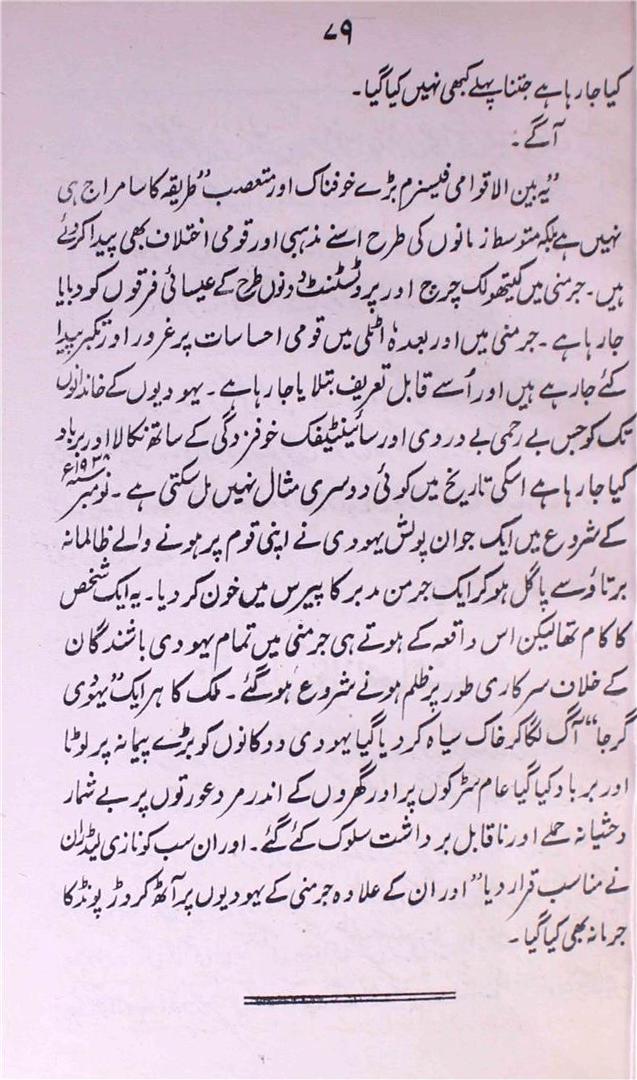 ۷۹
کیا جا رہا ہے جتنا پہلے کبھی نہیں کیا گیا۔
آگے:
”یہ بین الاقوامی فیسزم بڑے خوفناک اور متعصب“ طریقہ کا سامراج ہی
نہیں ہے بلکہ متوسط زمانوں کی طرح اسنے مذہبی اور قومی اختلاف بھی پیدا کر دئے
ہیں۔ جرمنی میں کیتھولک چرچ اور پروٹسٹنٹ دونوں طرح کے عیسائی فرقوں کو دبایا
جا رہا ہے۔ جرمنی میں اور بعدہٗ اٹلی میں قومی احساسات پر غرور اور تکبر پیدا
کئے جا رہے ہیں اور اُسے قابل تعریف بتلایا جا رہا ہے۔ یہودیوں کے خاندانوں
تک کو جس بے رحمی بے دردی اور سائینٹیفک خوفزدگی کے ساتھ نکالا اور برباد
کیا جا رہا ہے اسکی تاریخ میں کوئی دوسری مثال نہیں مل سکتی ہے۔ نومبر ۱۹۳۸ء
کے شروع میں ایک جوان پولش یہودی نے اپنی قوم پر ہونے والے ظالمانہ
برتاؤ سے پاگل ہو کر ایک جرمن مدبر کا پیرس میں خون کر دیا۔ یہ ایک شخص
کا کام تھا لیکن اس واقعہ کے ہوتے ہی جرمنی میں تمام یہودی باشندگان
کے خلاف سرکاری طور پر ظلم ہونے شروع ہو گئے۔ ملک کا ہر ایک ”یہودی
گرجا“ آگ لگا کر خاک سیاہ کر دیا گیا یہودی دوکانوں کو بڑے پیمانہ پر لوٹا
اور برباد کیا گیا عام سڑکوں پر اور گھروں کے اندر مرد عورتوں پر بے شمار
وحشیانہ حملے اور ناقابل برداشت سلوک کئے گئے۔ اور ان سب کو نازی لیڈران
نے مناسب قرار دیا“ اور ان کے علاوہ جرمنی کے یہودیوں پر آٹھ کروڑ پونڈ کا
جرمانہ بھی کیا گیا۔